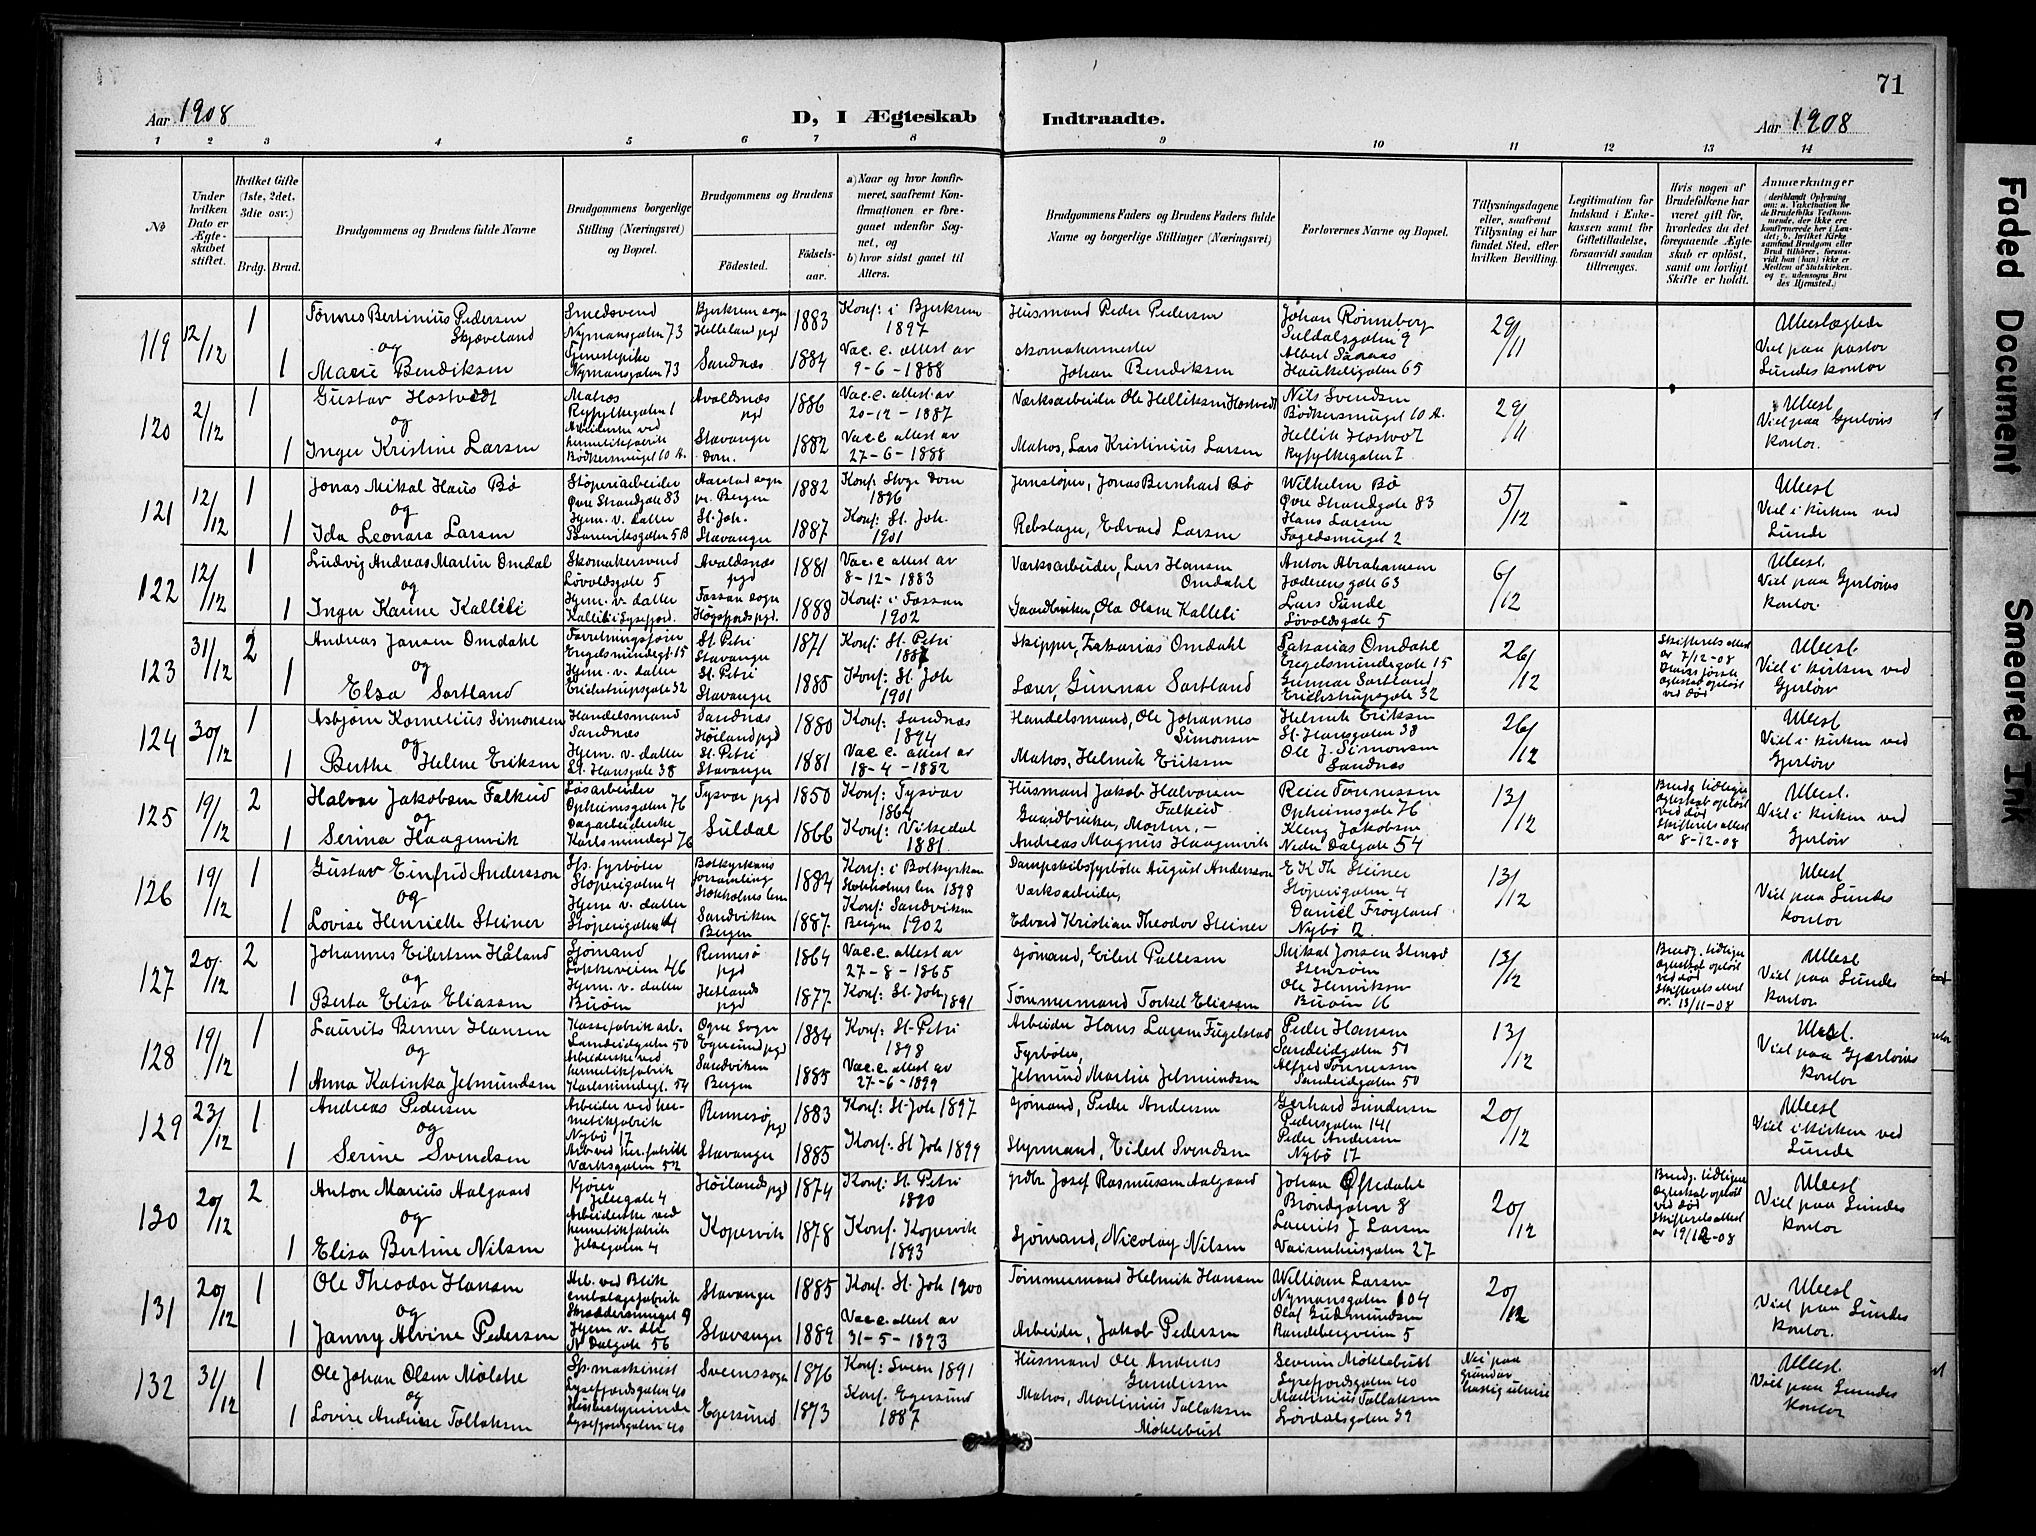 71
Aar 1908
D, I Ægteskab Indtraadte.
Aar 1908
1 2 3 4 5 6 7 8 9 10 11 12 13 14
No
Under hvilken Dato er Ægteskabet stiftet.
Hvilket Gifte (1ste, 2det, 3die osv.)
Brdg. Brud.
Brudgommens og Brudens fulde Navne
Brudgommens borgerlige Stilling (Næringsvei) og Bopæl.
Brudgommens og Brudens
Fødested.
Fødselsaar.
a) Naar og hvor konfirmeret, saafremt Konfirmationen er foregaaet udenfor Sognet, og
b) hvor sidst gaaet til Alters.
Brudgommens Faders og Brudens Faders fulde Navne og borgerlige Stillinger (Næringsvei)
Forlovernes Navne og Bopæl.
Tillysningsdagene eller, saafremt Tillysning ei har fundet Sted, efter hvilken Bevilling.
Legitimation for Indskud i Enkekassen samt for Giftetilladelse, forsaavidt saadan tiltrænges.
Hvis nogen af Brudefolkene har været gift før, hvorledes da det foregaaende Ægteskab er opløst, samt om lovligt Skifte er holdt.
Anmærkninger
119 12/12 1 Tønnes Bertinius Pedersen Skjæveland
Smedsvend Nymansgaten 73
Bjerkrem sogn Helleland pgd 1883
Konf: i Bjerkrem 1897
Husmand Peder Pedersen
Johan Rønneberg Suldalsgaten 9
29/11
Viel paa pastor Lundes kontor
og
1 Marie Bendiksen
Tjenestepike Nymansgaten 73
Sandnæs 1884
Vac. c. attest av 9-6-1888
skomakermester Johan Bendiksen
Haukeligaten 65
120 2/12 1 Gustav Hostvedt
Matros Ryfylkegaten 1
Avaldsnæs pgd 1886
Vac. c. attest av 20-12-1887
Værksarbeider Ole Helliksen Hostvedt
Nils Svendsen Bødkersmuget 10 A.
29/11
Viel paa Gjerløvs kontor.
og
1 Inger Kristine Larsen
Arbeiderske ved hermetikfabrik Bødkersmuget 10 A.
Stavanger Dom. 1882
Vac. c attest av 27-6-1888
Matros, Lars Kristinius Larsen
Hellik Hostvedt Ryfylkegaten 1
121 12/12 1 Jonas Mikal Haus Bø
Støperiarbeider Øvre Strandgate 83
Aarstad sogn pr. Bergen 1882
Konf. Stvgr Dom 1896
Jernstøper, Jonas Bernhard Bø
Wilhelm Bø Øvre Strandgate 83
5/12
Viel i kirken ved Lunde
og
1 Ida Leonara Larsen
Hjem. v. datter Baneviksgaten 5B
St. Joh. Stavanger 1887
Konf: St. Joh. 1901
Rebslager, Edvard Larsen
Hans Larsen Fogedsmuget 2
122 12/12 1 Ludvig Andreas Martin Omdal
Skomakersvend Løvoldsgate 5
Avaldsnæs pgd 1881
Vac. c attest av 8-12-1883
Værksarbeider, Lars Hansen Omdahl
Anton Abrahamsen Jæderensgate 63
6/12
Viel paa Gjerløvs kontor.
og
1 Inger Karine Kalleli
Hjem. v. datter Kalleli i Lysefjord.
Fossan sogn Høgsfjord pgd. 1888
Konf: i Fossan 1902
Gaardbruker, Ola Olsen Kalleli
Lars Sunde Løvoldsgate 5
123 31/12 2 Andreas Jansen Omdahl
Engelsmindegt. 15
St. Petri Stavanger 1871
Konf. St. Petri 1887
Skipper, Zakarias Omdahl
Zakarias Omdahl Engelsmindegate 15
26/12
Skifterets attest av 7/12-08
Viel i kirken ved Gjerløv
og
1 Elsa Sørtland
Hjem. v. datter Erichstrupsgate 32
St. Petri Stavanger 1885
Konf: St. Joh 1901
Lærer, Gunnar Sørtland
Gunnar Sørtland Erichstrupsgate 32
124 30/12 1 Asbjørn Kornelius Simonsen
Handelsmand Sandnæs
Sandnæs Høiland pgd 1880
Konf: Sandnæs 1894
Handelsmand, Ole Johannes Simonsen
Helmik Eriksen St. Hansgate 38
26/12
Viel i kirken ved Gjerløv
og
1 Berthe Helene Eriksen
Hjem. v. datter St. Hansgate 38
St. Petri Stavanger 1881
Vac. c. attest av 18-4-1882
Matros, Helmik Eriksen
Ole J. Simonsen Sandnæs
125 19/12 2 Halvor Jakobsen Falkeid
Løsarbeider Opheimsgaten 76
Tysvær pgd 1850
Konf: Tysvær 1864
Husmand Jakob Halvorsen Falkeid
Reier Tønnessen Opheimsgate 76
13/12
Brudg. tidligere ægteskab opløst ved død Skifterets attest av 8-12-08
Viel i kirken ved Gjerløv
og
1 Serina Haagenvik
Dagarbeiderske Karlsmindegt 76
Suldal 1866
Konf: Vikedal 1881
Gaardbruker, Morten, – Andreas Magnus Haagenvik
Kleng Jakobsen Nedre Dalgate 54
126 19/12 1 Gustav Einfrid Andersson
Sps. fyrbøter Støperigaten 4
Botkyrkans forsamling Stokholms len 1884
Konf: i Botkyrkan Stokholms len 1898
Dampskibsfyrbøter August Andersson
E. K. Th. Steiner Støperigaten 4
13/12
Viel paa Lundes kontor
og
1 Lovise Henriette Steiner
Hjem v. datter Støperigaten 4
Sandviken Bergen 1887.
Konf: Sandviken Bergen 1902
Værksarbeider, Edvard Kristian Theodor Steiner
Daniel Frøyland Nybø 12.
127 20/12 2 Johannes Eilertsen Håland
Sjømand Løkkeveien 46
Rennesø pgd 1864
Vac. c. attest av 27-8-1865
Sjømand, Eilert Pallesen
Mikal Jonsen Stensø Stensøen
13/12
Brudg. tidligere ægteskab opløst ved død Skifterets attest av. 13/11-08
Viel paa Lundes kontor
og
1 Berta Elisa Eliassen
Hjem. v. datter Buøen
Hetlands pgd 1877.
Konf: St. Joh 1891
Tømmermand Torkel Eliassen
Ole Henriksen Buøen 16
128 19/12 1 Laurits Berner Hansen
Kassefabrik arb. Sandeidgaten 50
Ogne sogn Egersund pgd 1884
Konf: St. Petri 1898
Arbeider Hans Larsen Fuglestad
Peder Hansen Sandeidgaten 50
13/12
Viel paa Gjerløvs kontor
og
1 Anna Katinka Jelmundsen
Arbeiderske ved hermetikfabrik Karlsmindegt. 54
Sandviken Bergen 1885
Vac. c. attest av 27-6-1899
Fyrbøter, Jelmund Martin Jelmundsen
Alfred Tønnessen Sandeidgaten 50
129 23/12 1 Andreas Pedersen
Arbeider ved hermetikfabrik Nybø 17
Rennesø pgd 1883
Konf: St. Joh 1897
Sjømand, Peder Andersen
Gerhard Gundersen Pedersgaten 141
20/12
Viel i kirken ved Lunde
og
1 Serine Svendsen
Arb ved her. fabrikk Værksgaten 52
Stavanger 1885
Konf. St Joh 1899
Styrmand, Eilert Svendsen
Peder Andersen Nybø 17
130 20/12 2 Anton Marius Aalgaard
Kjører Jelsegate 4
Høilands pgd 1874
Konf. St. Petri 1890
grdbr Josef Rasmussen Aalgaard
Johan Oftedahl Brøndgaten 8
20/12
Brudg. tidligere ægteskab opløst ved død Skifterets attest av 19/12-08
Viel paa Lundes kontor
og
1 Elisa Bertine Nilsen
Arbeiderske ved hermetikfabrik Jelsegaten 4
Kopervik 1878
Konf. Kopervik 1893
Sjømand, Nicolay Nilsen
Laurits J. Larsen Vaisenhusgaten 27
131 20/12 1 Ole Theodor Hansen
Arb. ved Blik embalagefabrik Skræddersmuget 9
Stavanger 1885
Konf. St. Joh 1900
Tømmermand Helmik Hansen
William Larsen Nymansgaten 104
20/12
Viel paa Lundes kontor.
og
1 Janny Alvine Pedersen
Hjem v. dtr N. Dalgate 56
Stavanger 1889
Vac. c attest av 31-5-1893
Arbeider, Jakob Pedersen
Olaf Gudmundsen Randebergveien 5
132 31/12 1 Ole Johan Olsen Mølstre
Sps. maskinist Lysefjordsgaten 40
Sveens sogn 1876
Konf: Sveen 1891
Husmand Ole Andreas Gundersen
Severin Møklebust Lysefjordsgaten 40
Nei paa grund av hastig utreise
Viel paa Lundes kontor
og
1 Lovise Andrine Tollaksen
Lysefjordsgaten 40
Egersund 1873
Konf. Egersund 1887
Matros, Martinius Tollaksen Møklebust
Martinius Tollaksen Løvdalsgaten 39
Faded Document
Smeared Ink